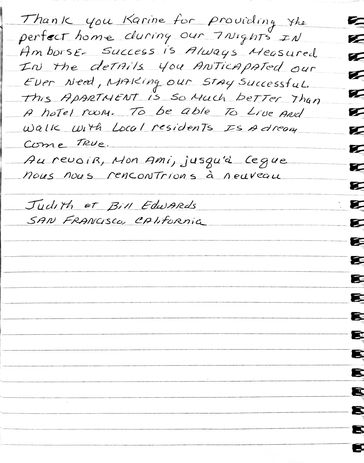 Thank you Karine for providing the
perfect home during our 7 nights in
Amborse. Success is always measured
in the details you anticapated our
ever need, making our stay successful.
This apartment is so much better than
a hotel room. To be able to live and
walk with local residents is a dream
come true.
Au revoir, mon ami, jusqu'à ceque
nous nous rencontrions à nouveau
Judith et Bill Edwards
San Francisco, California